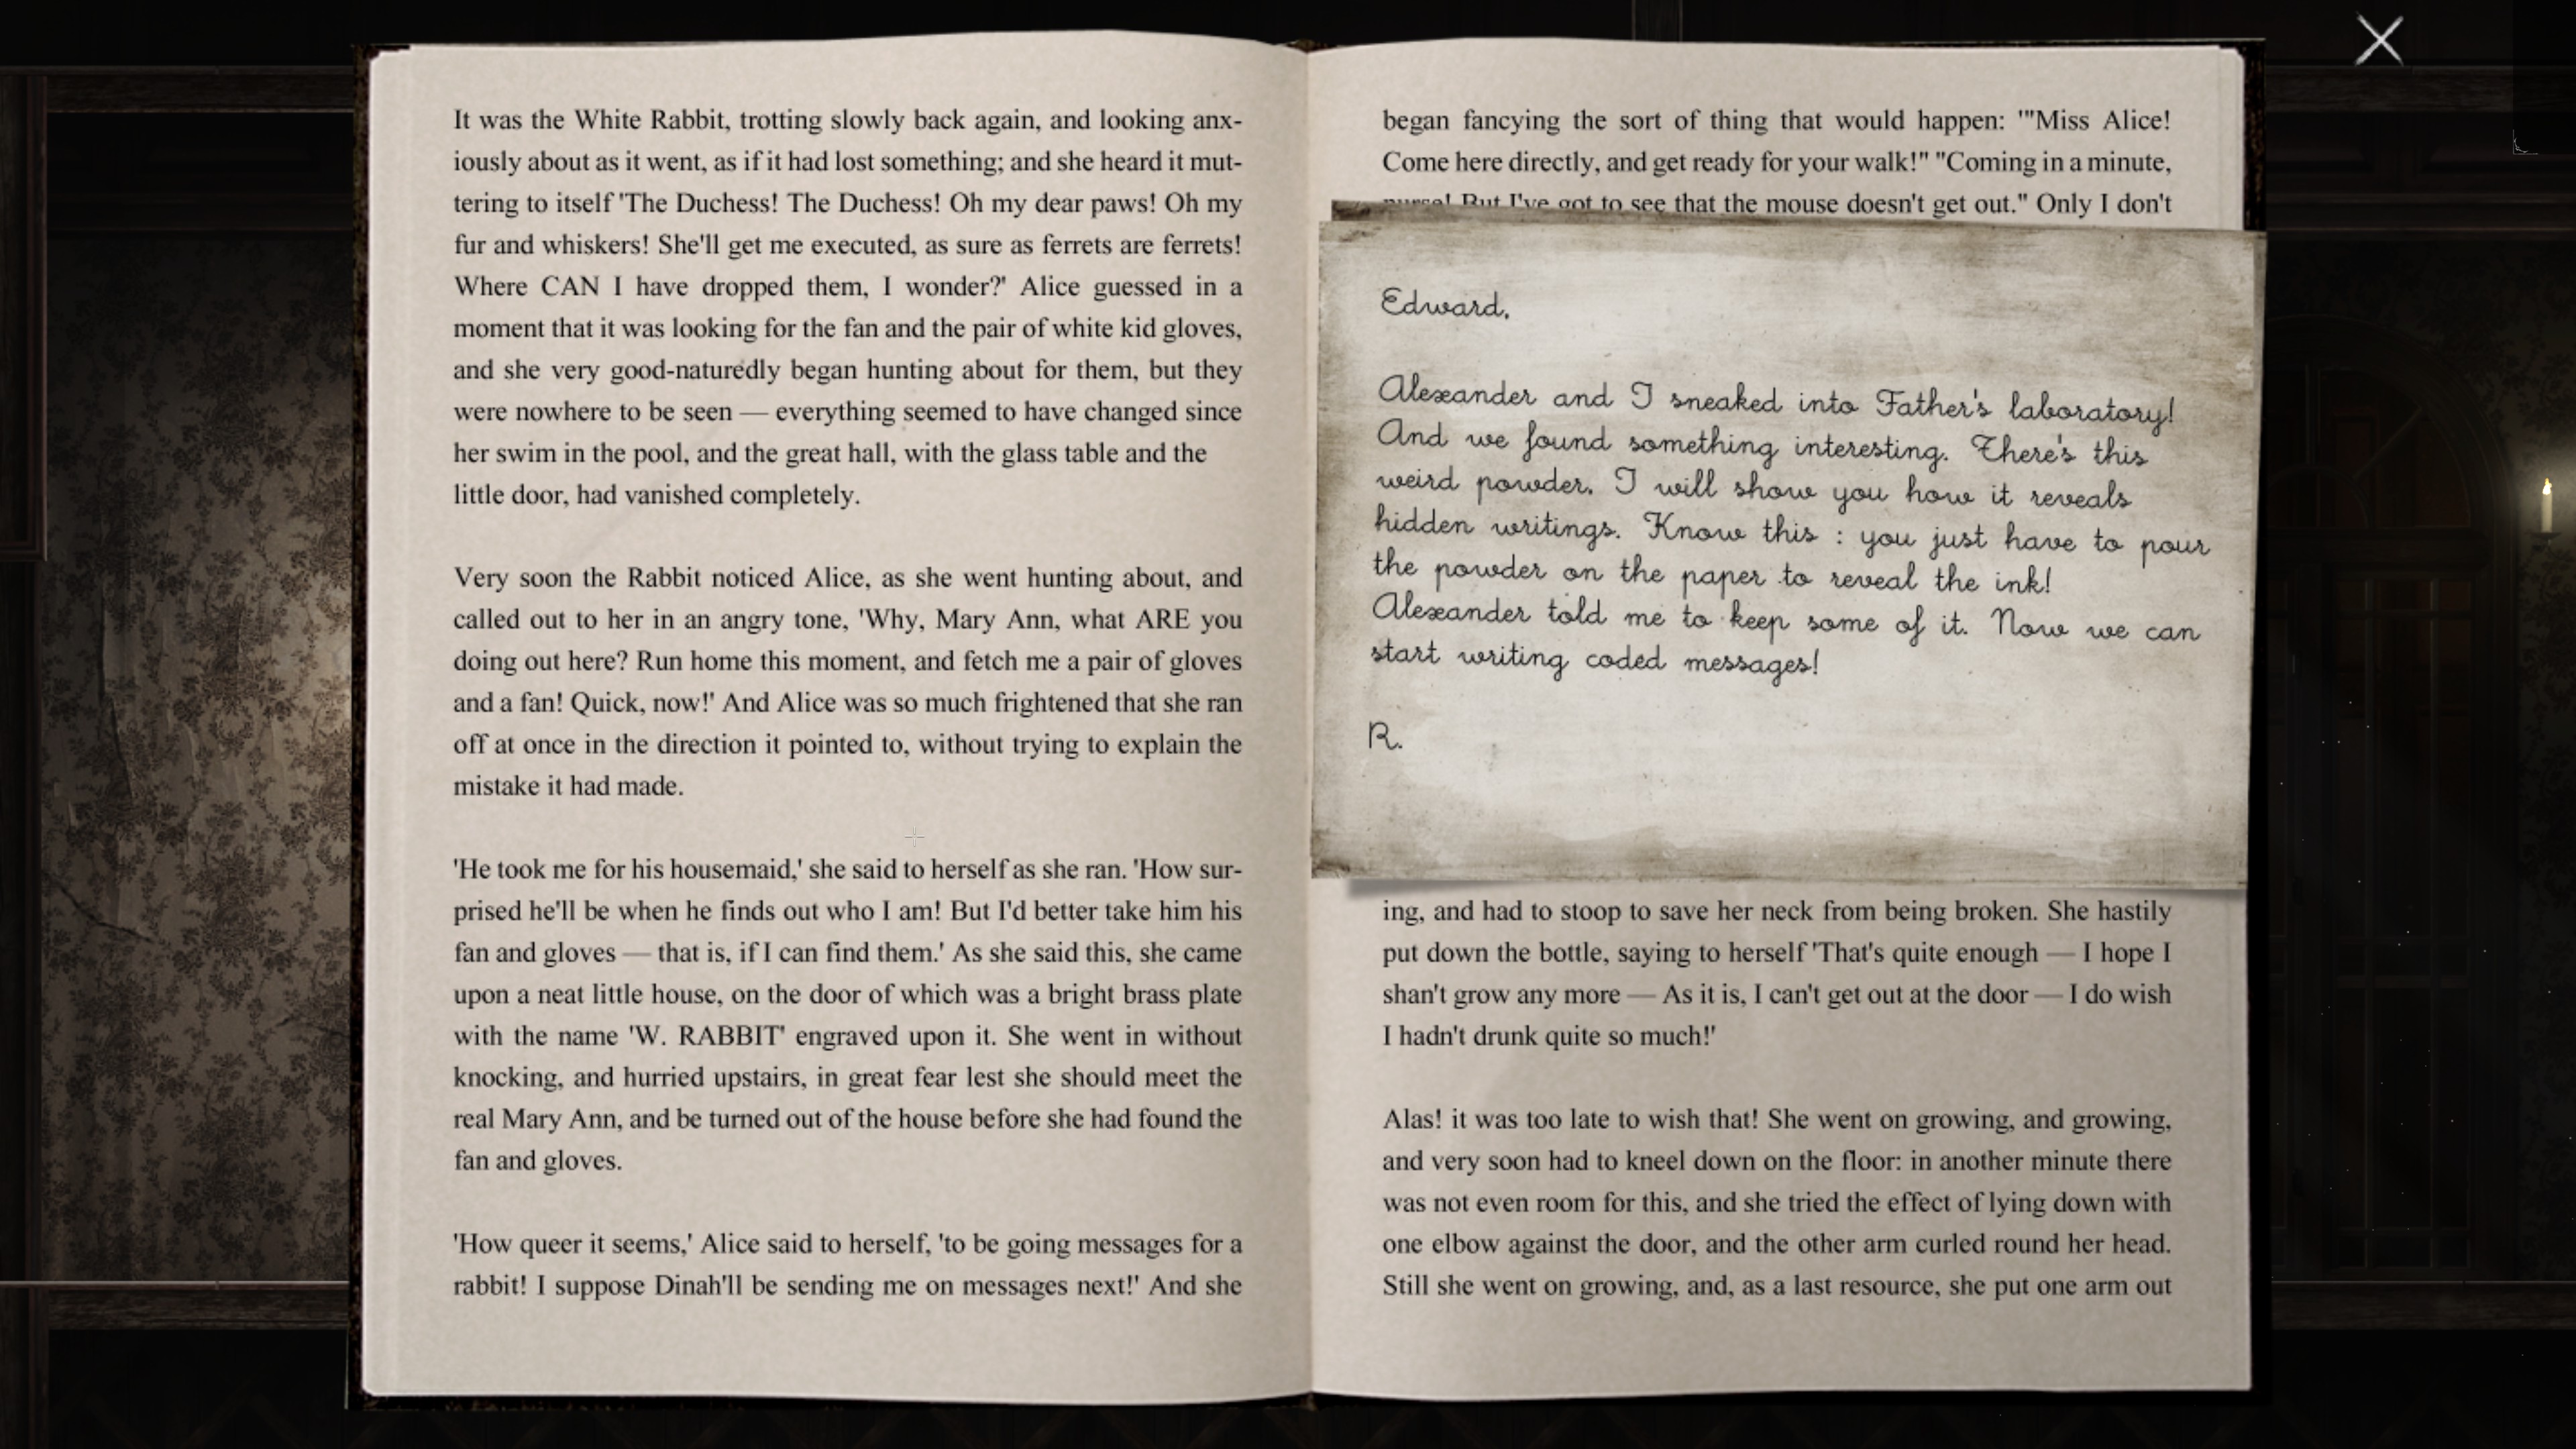 It was the White Rabbit, trotting slowly back again, and looking anx-
iously about as it went, as if it had lost something; and she heard it mut-
tering to itself 'The Duchess! The Duchess! Oh my dear paws! Oh my
fur and whiskers! She'll get me executed, as sure as ferrets are ferrets!
Where CAN I have dropped them, I wonder?' Alice guessed in a
moment that it was looking for the fan and the pair of white kid gloves,
and she very good-naturedly began hunting about for them, but they
were nowhere to be seen — everything seemed to have changed since
her swim in the pool, and the great hall, with the glass table and the
little door, had vanished completely.
Very soon the Rabbit noticed Alice, as she went hunting about, and
called out to her in an angry tone, 'Why, Mary Ann, what ARE you
doing out here? Run home this moment, and fetch me a pair of gloves
and a fan! Quick, now!' And Alice was so much frightened that she ran
off at once in the direction it pointed to, without trying to explain the
mistake it had made.
'He took me for his housemaid,' she said to herself as she ran. 'How sur-
prised he'll be when he finds out who I am! But I'd better take him his
fan and gloves — that is, if I can find them.' As she said this, she came
upon a neat little house, on the door of which was a bright brass plate
with the name 'W. RABBIT' engraved upon it. She went in without
knocking, and hurried upstairs, in great fear lest she should meet the
real Mary Ann, and be turned out of the house before she had found the
fan and gloves.
'How queer it seems,' Alice said to herself, 'to be going messages for a
rabbit! I suppose Dinah'll be sending me on messages next!' And she
began fancying the sort of thing that would happen: '"Miss Alice!
Come here directly, and get ready for your walk!" "Coming in a minute,
nurse! But I've got to see that the mouse doesn't get out." Only I don't
Edward,
Alexander and I sneaked into Father's laboratory!
And we found something interesting. There's this
weird powder. I will show you how it reveals
hidden writings. Know this : you just have to pour
the powder on the paper to reveal the ink!
Alexander told me to keep some of it. Now we can
start writing coded messages!
R.
ing, and had to stoop to save her neck from being broken. She hastily
put down the bottle, saying to herself 'That's quite enough — I hope I
shan't grow any more — As it is, I can't get out at the door — I do wish
I hadn't drunk quite so much!'
Alas! it was too late to wish that! She went on growing, and growing,
and very soon had to kneel down on the floor: in another minute there
was not even room for this, and she tried the effect of lying down with
one elbow against the door, and the other arm curled round her head.
Still she went on growing, and, as a last resource, she put one arm out